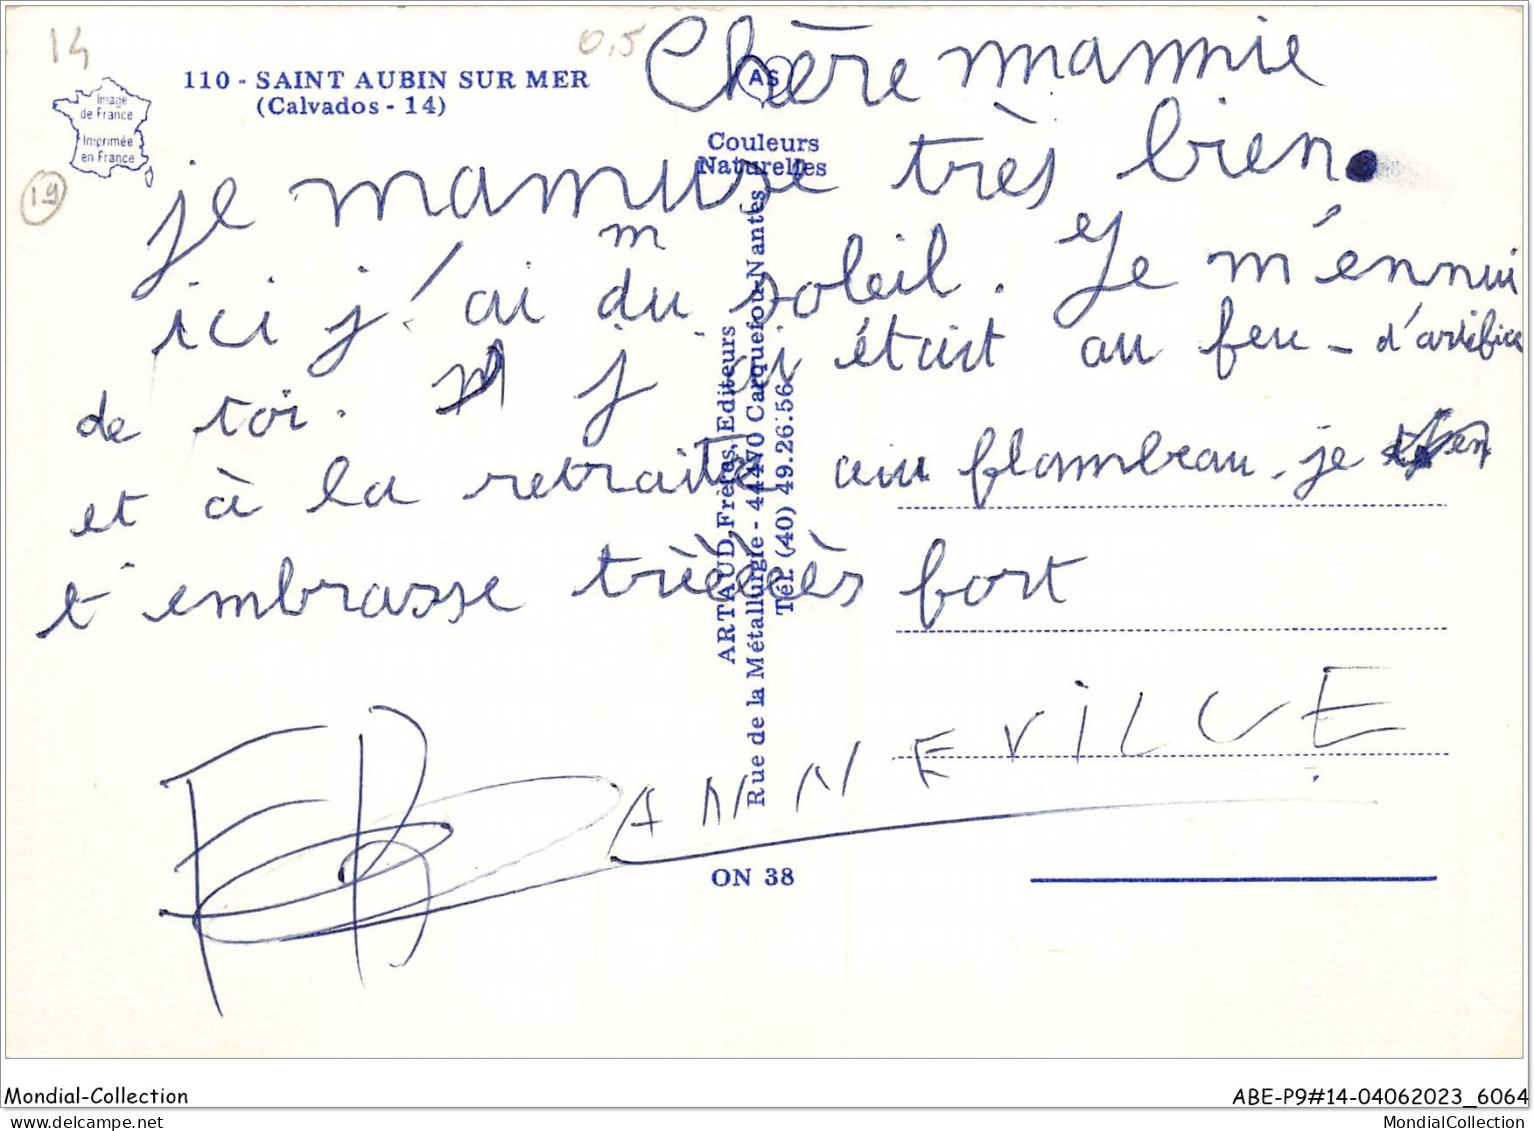 14
0,5
110 - SAINT AUBIN SUR MER
(Calvados - 14)
Image
de France
Imprimée
en France
19
AS
Couleurs
Naturelles
ARTAUD Frères, Editeurs
Rue de la Métallurgie - 44470 Carquefou-Nantes
Tél. (40) 49.26.56
Chère mamie
je mamuse très bien.
m
ici j'ai du soleil. et Je m'ennui
de toi. j'ai était au feu - d'artifice
et à la retraite aiu flambeau. je
t'embrasse trèèèès fort
ANNEVILLE
ON 38
Mondial-Collection
ABE-P9#14-04062023_6064
MondialCollection